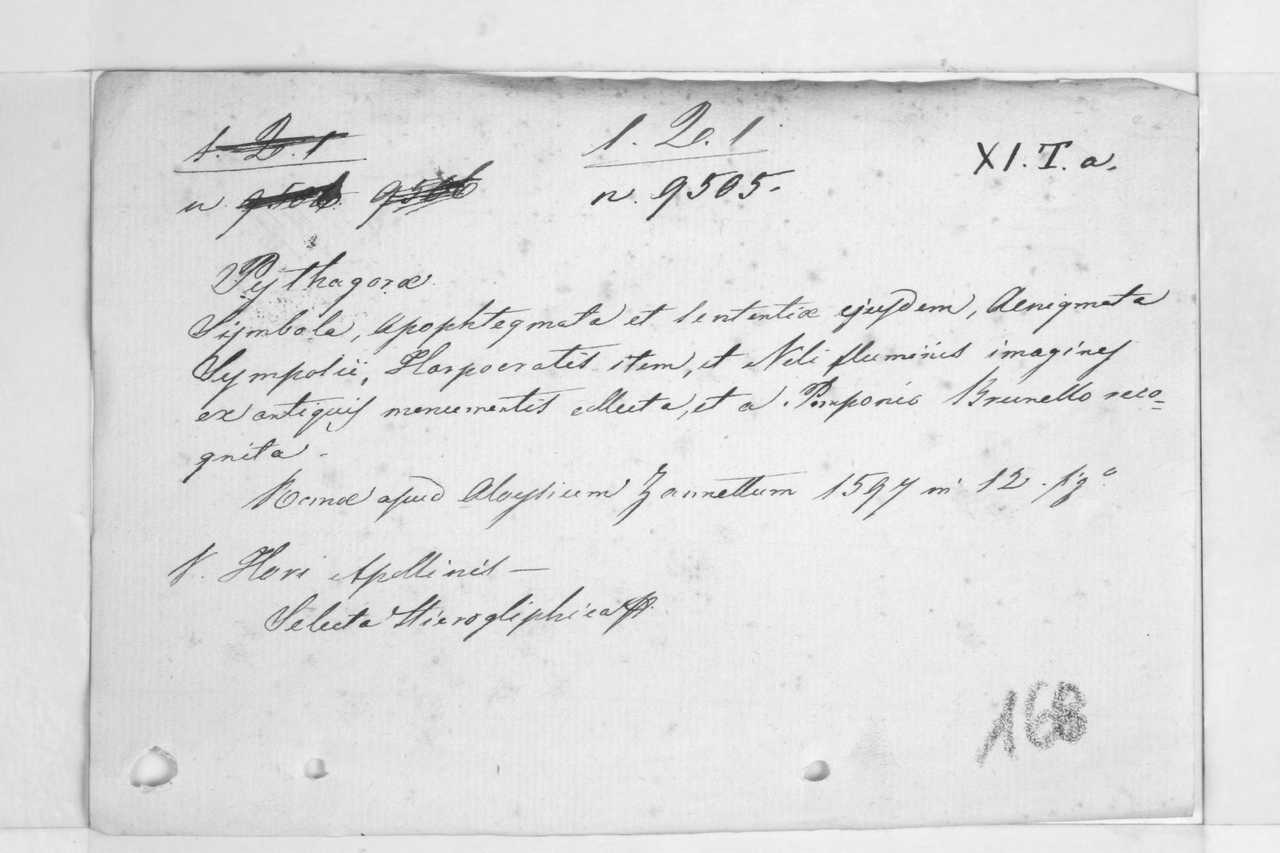 1. D. 1
n. 9505.
XI. T. a.
Pythagoræ
Symbola, apophtegmata et sententiæ ejusdem, Aenigmata
Symposii, Harpocratis item, et Nili fluminis imagines
ex antiquis monumentis collecta, et a Pomponio Brunello reco=
gnita.
Romæ apud Aloysium Zannettum 1597 in 12. fig.°
V. Hori Apollinis —
Selecta Hierogliphica
168